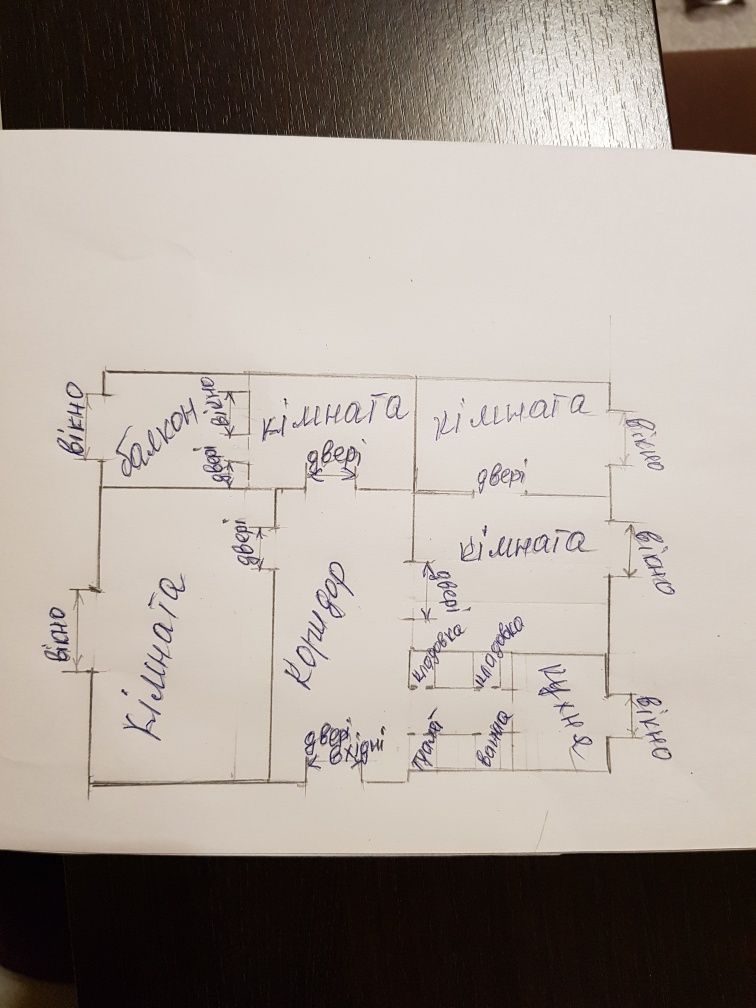 вікно
балкон
двері
вікно
кімната
двері
кімната
вікно
двері
кімната
вікно
двері
вікно
кімната
двері
коридор
двері
вхідні
кладовка
кладовка
кухня
вікно
туалет
ванна